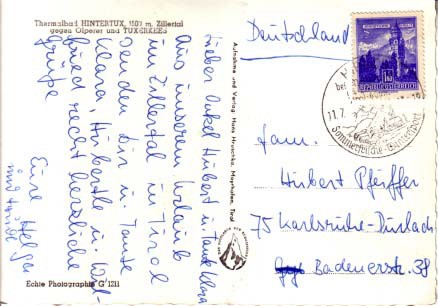 Thermalbad HINTERTUX, 1500 m. Zillertal
gegen Olperer und TUXERKEES
Lieber Onkel Hubert u. Tante Klara
Aus unserem Urlaub
im Zillertal in Tirol
senden Dir u. Tante
Klara, Hubertle u. Wil-
fried recht herzliche
Grüße
Eure Helga
und
Echte Photographie G 1211
Aufnahme und Verlag: Hans Hruschka, Mayrhofen, Tirol
Deutschland
REPUBLIK ÖSTERREICH
11.7.
Sommerfrische - Wintersport
Fam.
Hubert Pfeiffer
75 Karlsruhe-Durlach
Badenerstr. 38